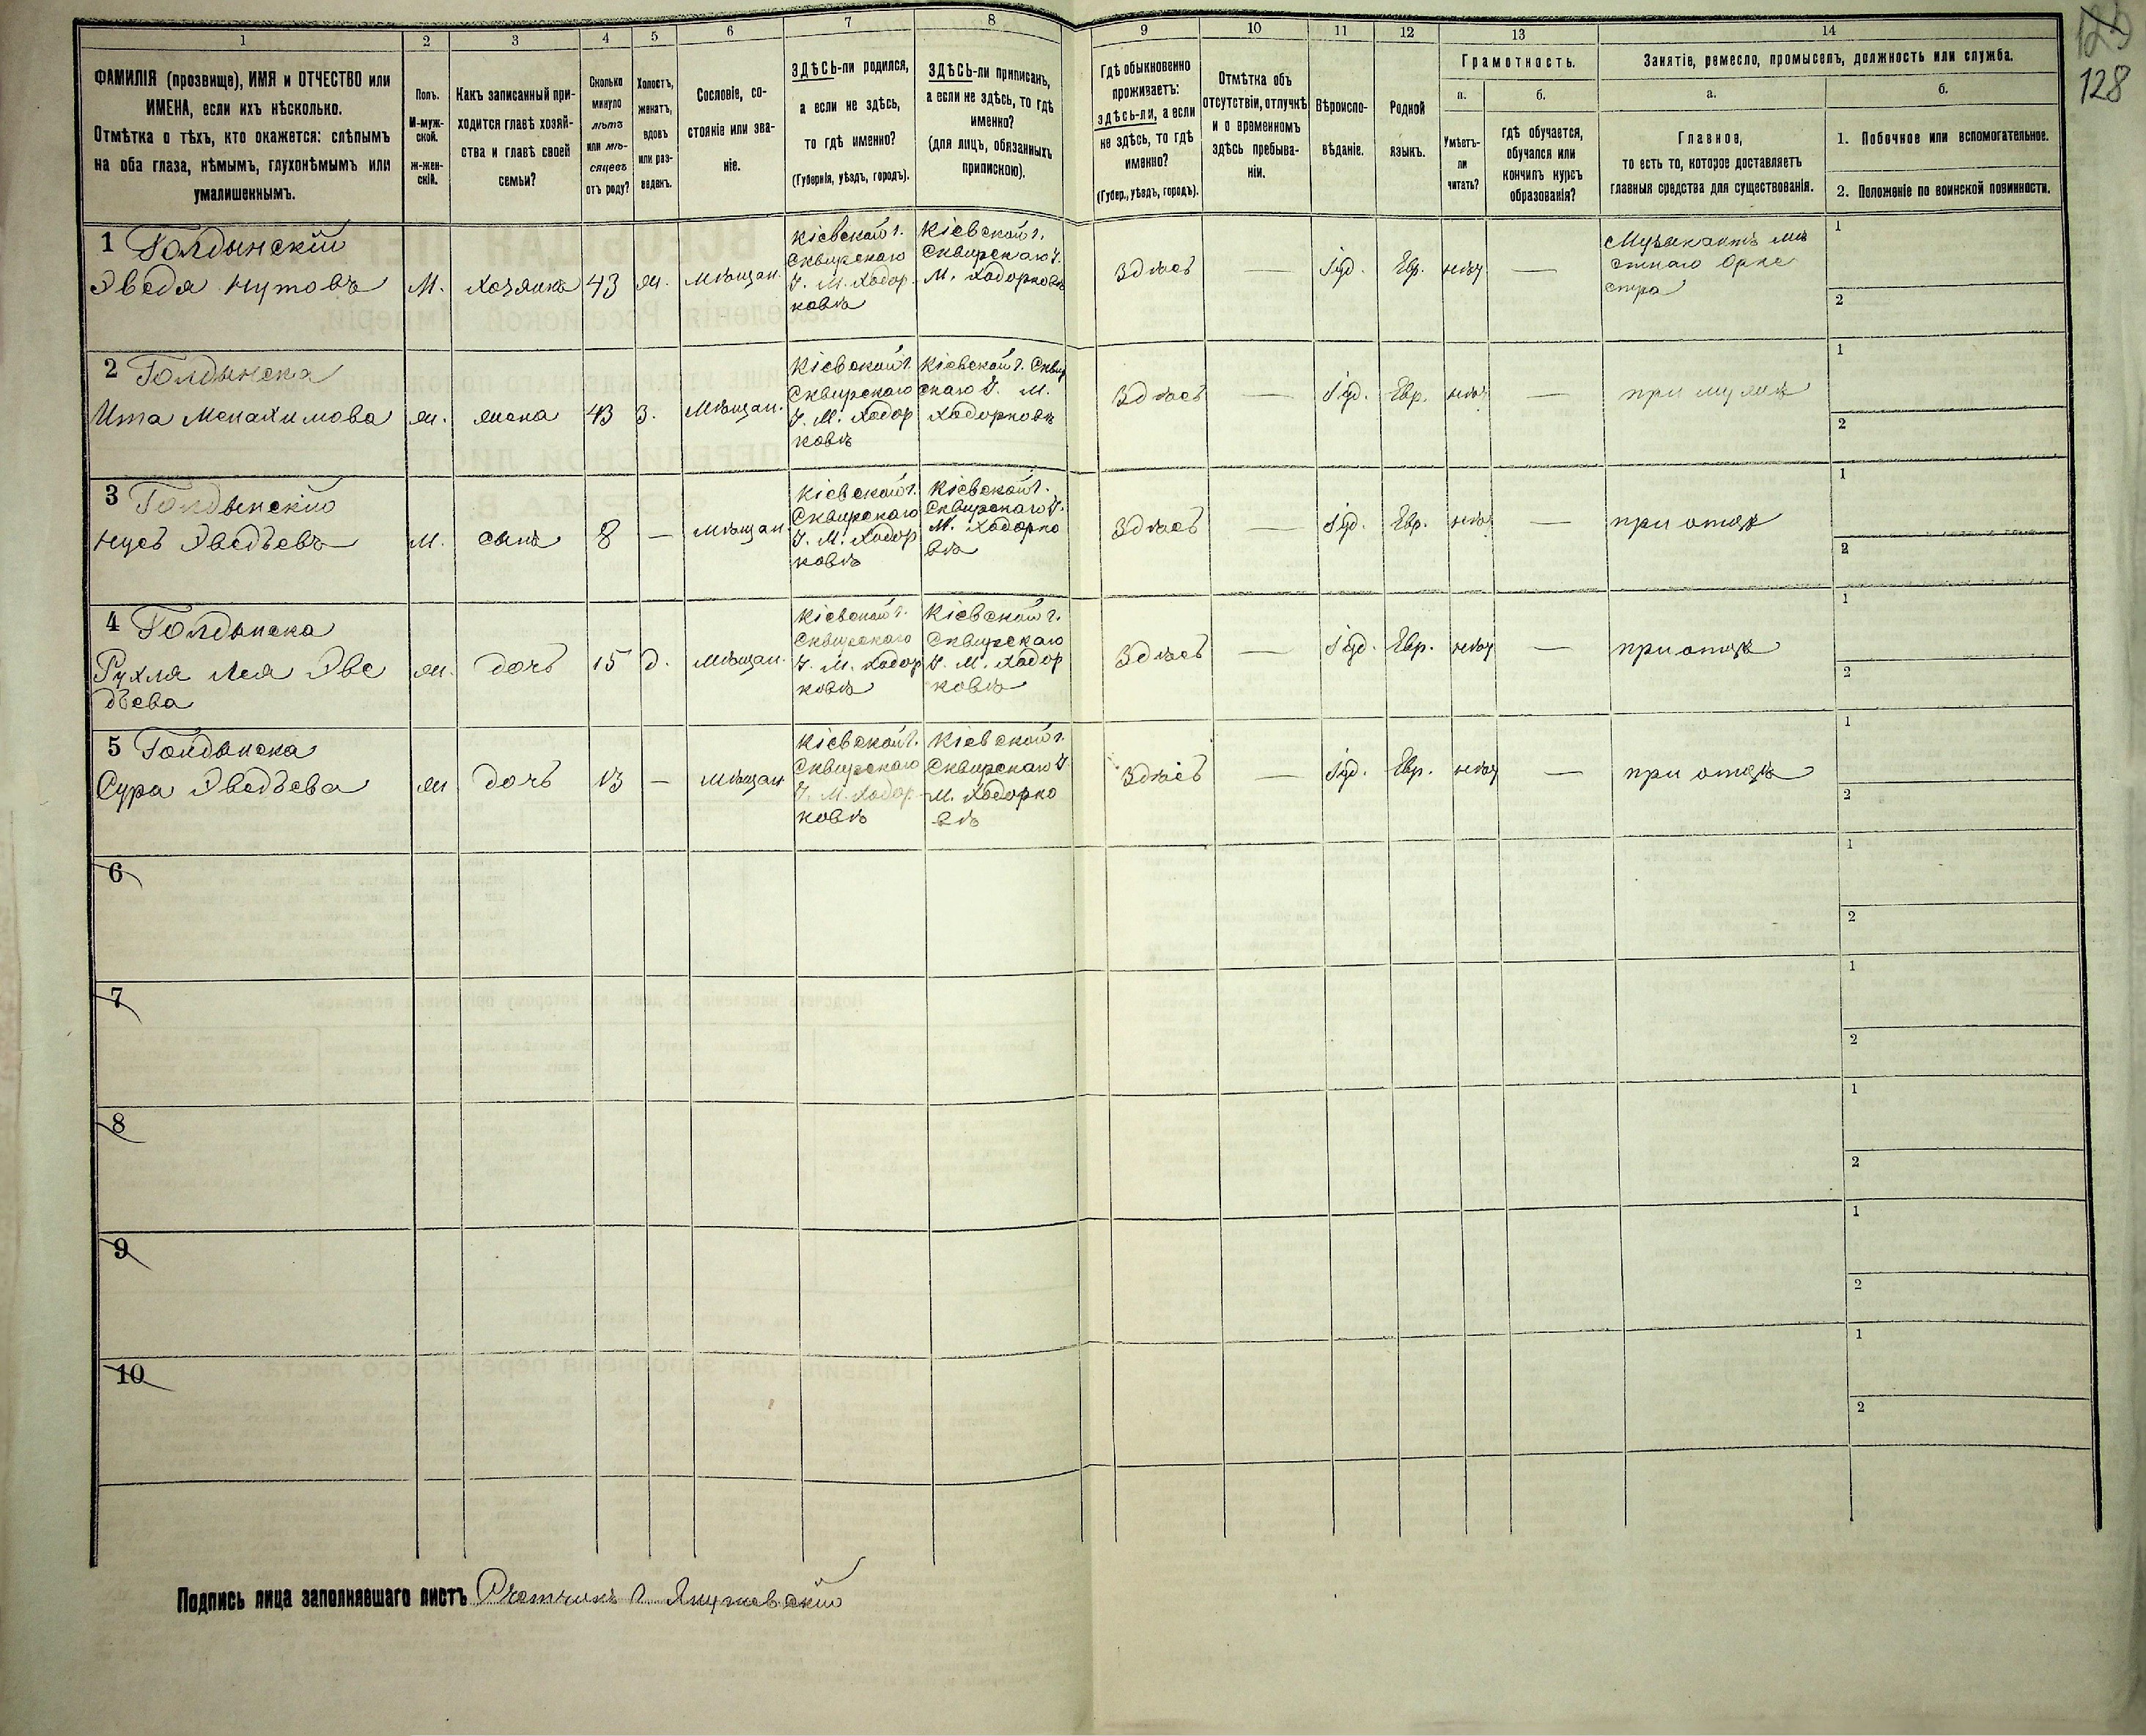 125
128
1 2 3 4 5 6 7 8 9 10 11 12 13 14
ФАМИЛІЯ (прозвище), ИМЯ и ОТЧЕСТВО или
ИМЕНА, если ихъ нѣсколько.
Отмѣтка о тѣхъ, кто окажется: слѣпымъ
на оба глаза, нѣмымъ, глухонѣмымъ или
умалишеннымъ.
Полъ.
М-муж-
ской.
ж-жен-
скій.
Какъ записанный при-
ходится главѣ хозяй-
ства и главѣ своей
семьи?
Сколько
минуло
лѣтъ
или мѣ-
сяцевъ
отъ роду?
Холостъ,
женатъ,
вдовъ
или раз-
веденъ.
Сословіе, со-
стояніе или зва-
ніе.
ЗДѢСЬ-ли родился,
а если не здѣсь,
то гдѣ именно?
(Губернія, уѣздъ, городъ).
ЗДѢСЬ-ли приписанъ,
а если не здѣсь, то гдѣ
именно?
(для лицъ, обязанныхъ
припискою).
Гдѣ обыкновенно
проживаетъ:
здѣсь-ли, а если
не здѣсь, то гдѣ
именно?
(Губер., уѣздъ, городъ).
Отмѣтка объ
отсутствіи, отлучкѣ
и о временномъ
здѣсь пребыва-
ніи.
Вѣроиспо-
вѣданіе.
Родной
языкъ.
Грамотность.
а.
Умѣетъ-
ли
читать?
б.
гдѣ обучается,
обучался или
кончилъ курсъ
образованія?
Занятіе, ремесло, промыселъ, должность или служба.
а.
Главное,
то есть то, которое доставляетъ
главныя средства для существованія.
б.
1. Побочное или вспомогательное.
2. Положеніе по воинской повинности.
1 Голдынскій
Эведя Нутовъ
М.
хозяинъ
43
ж.
Мѣщан.
Кіевской г.
Сквирскаго
У. М. Ходор
ковѣ
Кіевской г.
Сквирскаго У.
М. Ходорковѣ
Здѣсь
—
Іуд.
Евр.
—
Музыкантъ мѣ
стнаго Орке
стра
1
2
2 Голдынска
Ита Менахимова
ж.
жена
43
З.
Мѣщан.
Кіевской г.
Сквирскаго
У. М. Ходор
ковѣ
Кіевской г. Сквир
скаго У. М.
Ходорковѣ
Здѣсь
—
Іуд.
Евр.
—
при мужѣ
1
2
3 Голдынскій
Нусь Эведьевъ
М.
сынъ
8
—
Мѣщан.
Кіевской г.
Сквирскаго
У. М. Ходор
ковѣ
Кіевской г.
Сквирскаго У.
М. Ходорко
вѣ
Здѣсь
—
Іуд.
Евр.
—
при отцѣ
1
2
4 Голдынска
Рухля Лея Эве
дьева
ж.
дочь
15
д.
Мѣщан.
Кіевской г.
Сквирскаго
У. М. Ходор
ковѣ
Кіевской г.
Сквирскаго
У. М. Ходор
ковѣ
Здѣсь
—
Іуд.
Евр.
—
при отцѣ
1
2
5 Голдынска
Сура Эведьева
ж
дочь
13
—
Мѣщан
Кіевской г.
Сквирскаго
У. М. Ходор
ковѣ
Кіевской г.
Сквирскаго У
М. Ходорко
вѣ
Здѣсь
—
Іуд.
Евр.
—
при отцѣ
1
2
6
1
2
7
1
2
8
1
2
9
1
2
10
1
2
Подпись лица заполнявшаго листъ Счетчикъ